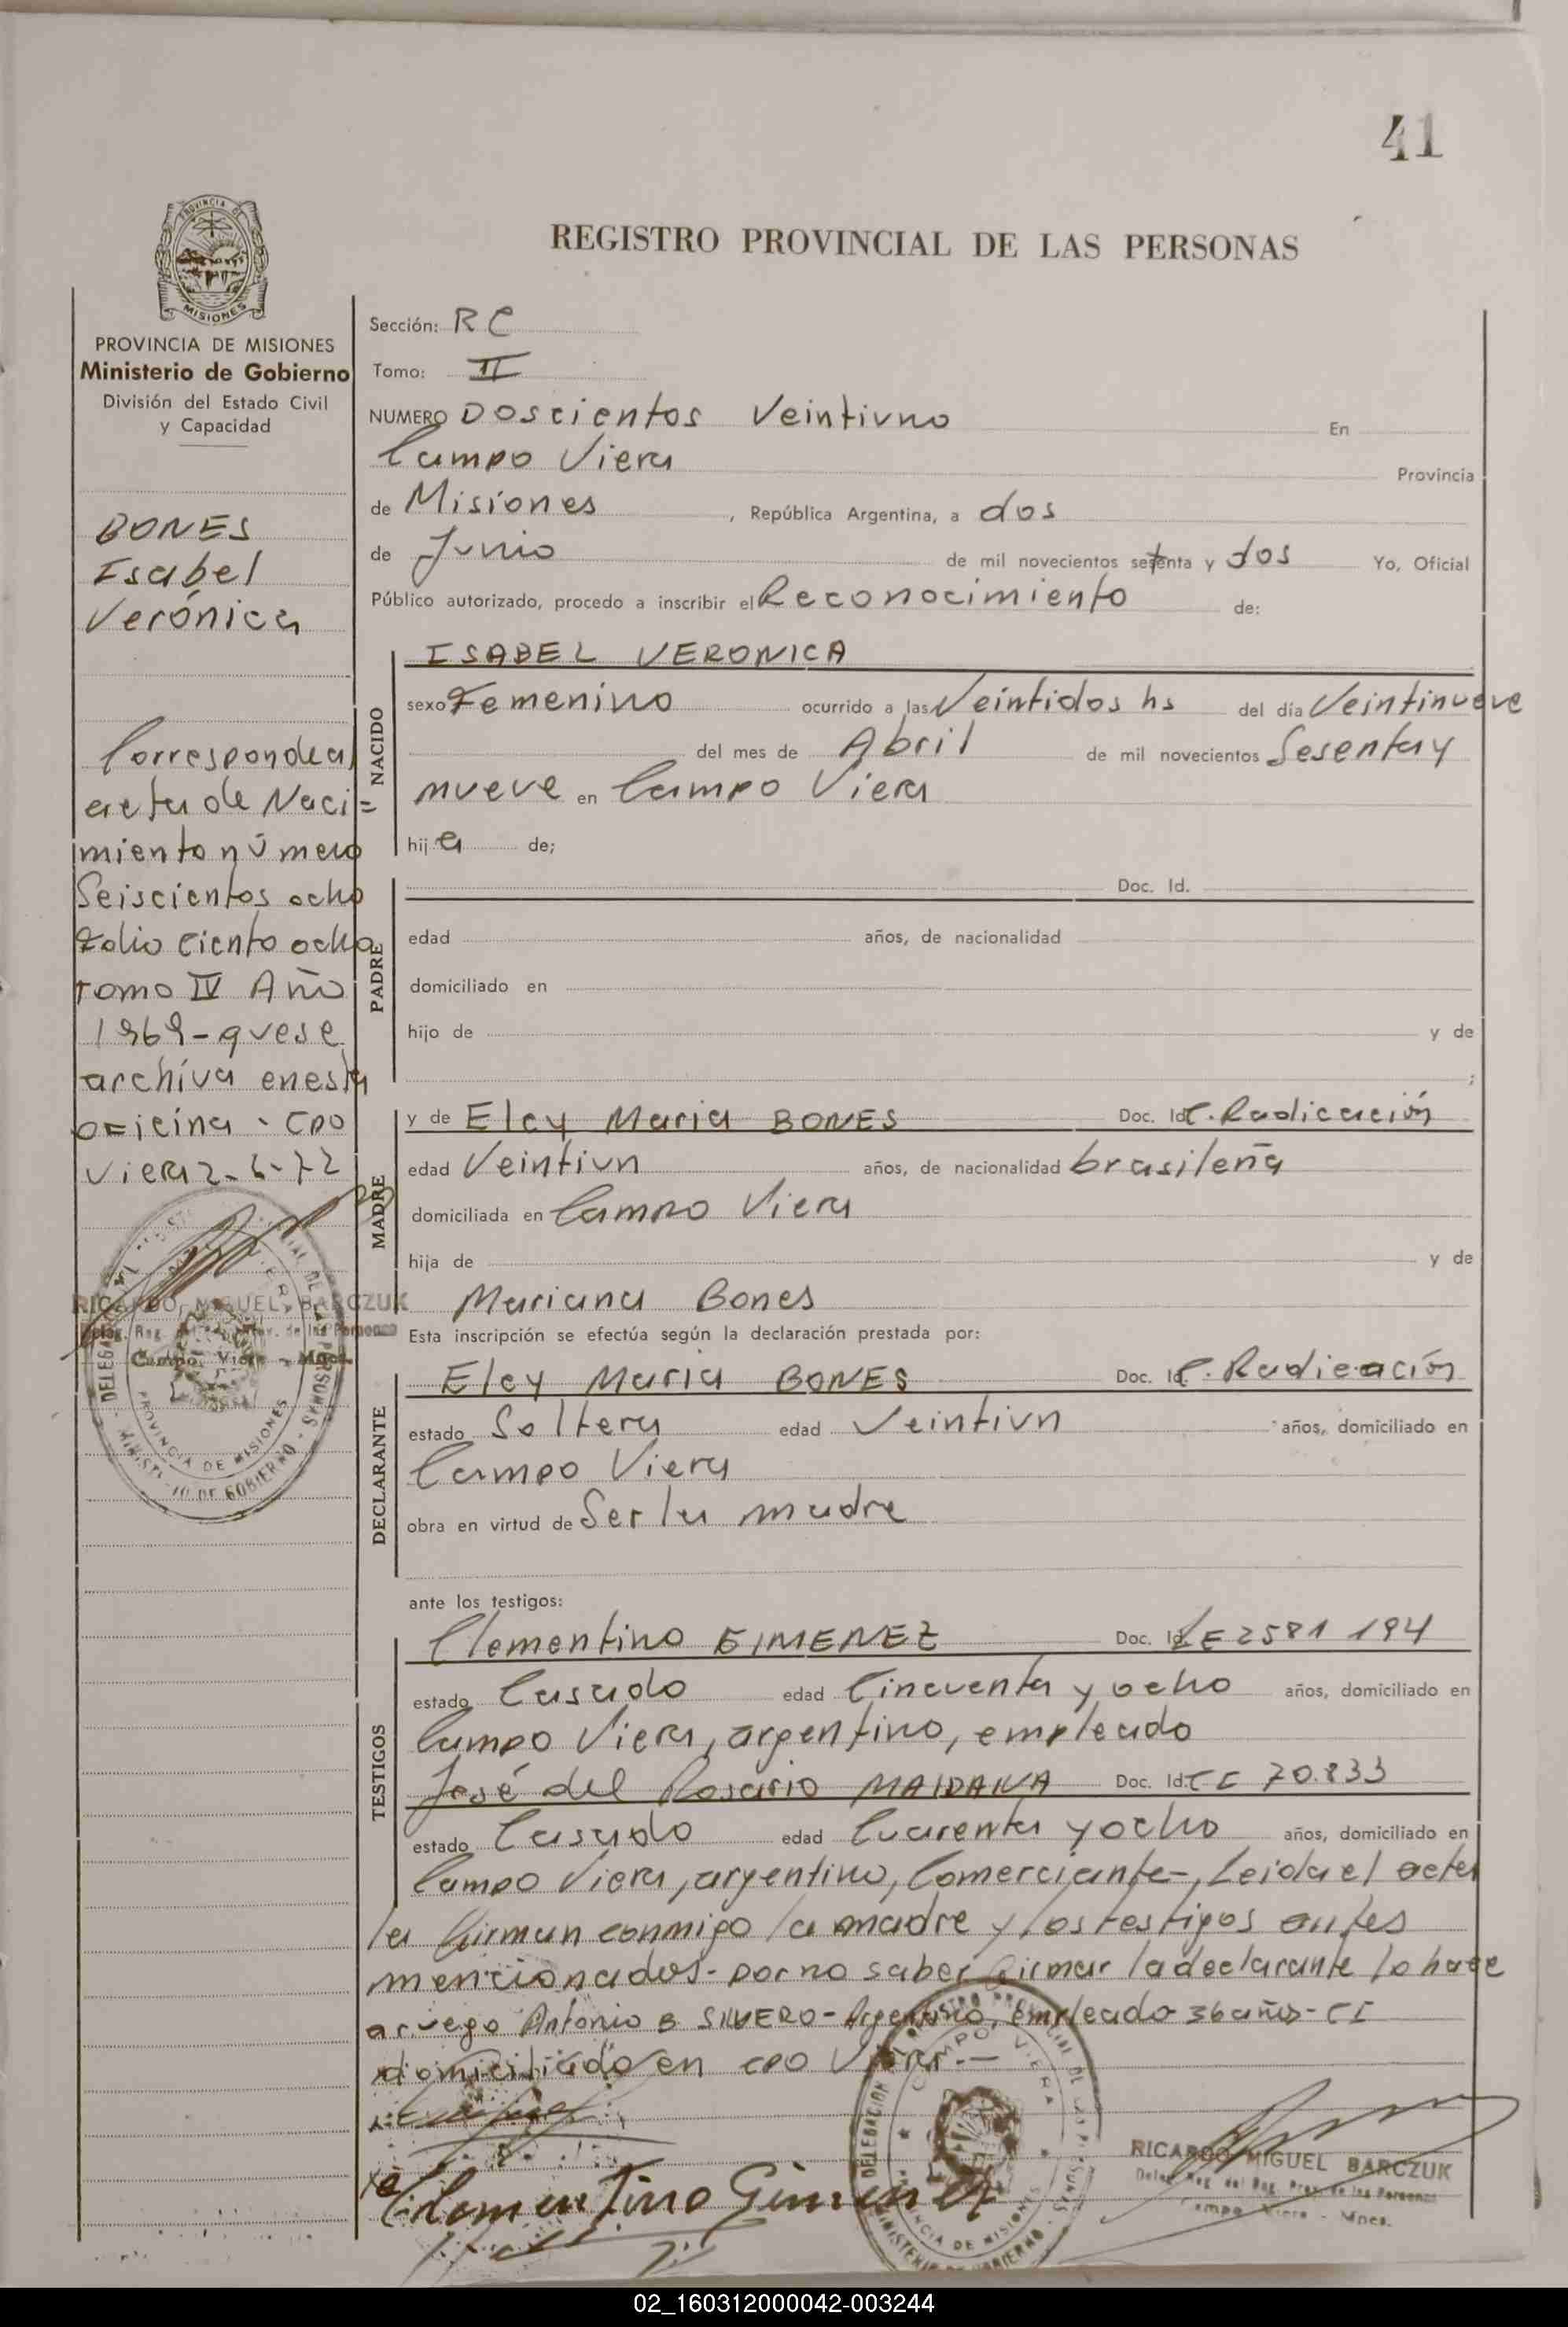 41
REGISTRO PROVINCIAL DE LAS PERSONAS
PROVINCIA DE MISIONES
Ministerio de Gobierno
División del Estado Civil
y Capacidad
BONES
Isabel
Verónica
Corresponde al
acta de Naci=
miento número
Seiscientos ocho
Folio ciento ocho
Tomo IV Año
1969 - que se
archiva en esta
oficina - Cpo
Viera 2-6-72
RICARDO MIGUEL BARCZUK
Campo Viera - Mnes.
Sección: RC
Tomo: II
NUMERO Doscientos Veintiuno En
Campo Viera Provincia
de Misiones, República Argentina, a dos
de Junio de mil novecientos setenta y dos Yo, Oficial
Público autorizado, procedo a inscribir el Reconocimiento de:
NACIDO
ISABEL VERONICA
sexo Femenino ocurrido a las Veintidos hs del día Veintinueve
del mes de Abril de mil novecientos Sesenta y
nueve en Campo Viera
hija de;
PADRE
Doc. Id.
edad años, de nacionalidad
domiciliado en
hijo de y de
;
MADRE
y de Elcy Maria BONES Doc. Id C. Radicación
edad Veintiun años, de nacionalidad brasileña
domiciliada en Campo Viera
hija de y de
Mariana Bones
Esta inscripción se efectúa según la declaración prestada por:
DECLARANTE
Elcy Maria BONES Doc. Id C. Radicación
estado Soltera edad Veintiun años, domiciliado en
Campo Viera
obra en virtud de Ser la madre
ante los testigos:
TESTIGOS
Clementino GIMENEZ Doc. Id LE 2581 194
estado Casado edad Cincuenta y ocho años, domiciliado en
Campo Viera, argentino, empleado
José del Rosario MAIDANA Doc. Id. CI 70.833
estado Casado edad Cuarenta y ocho años, domiciliado en
Campo Viera, argentino, Comerciante-, Leida el acta
la firman conmigo la madre y los testigos antes
mencionados- por no saber firmar la declarante lo hace
a ruego Antonio B. SILVERO - Argentino, empleado 36 años - CI
domiciliado en cpo Viera.-
Clementino Gimenez
RICARDO MIGUEL BARCZUK
Deleg. Reg. del Reg. Prov. de las Personas
Campo Viera - Mnes.
02_160312000042-003244